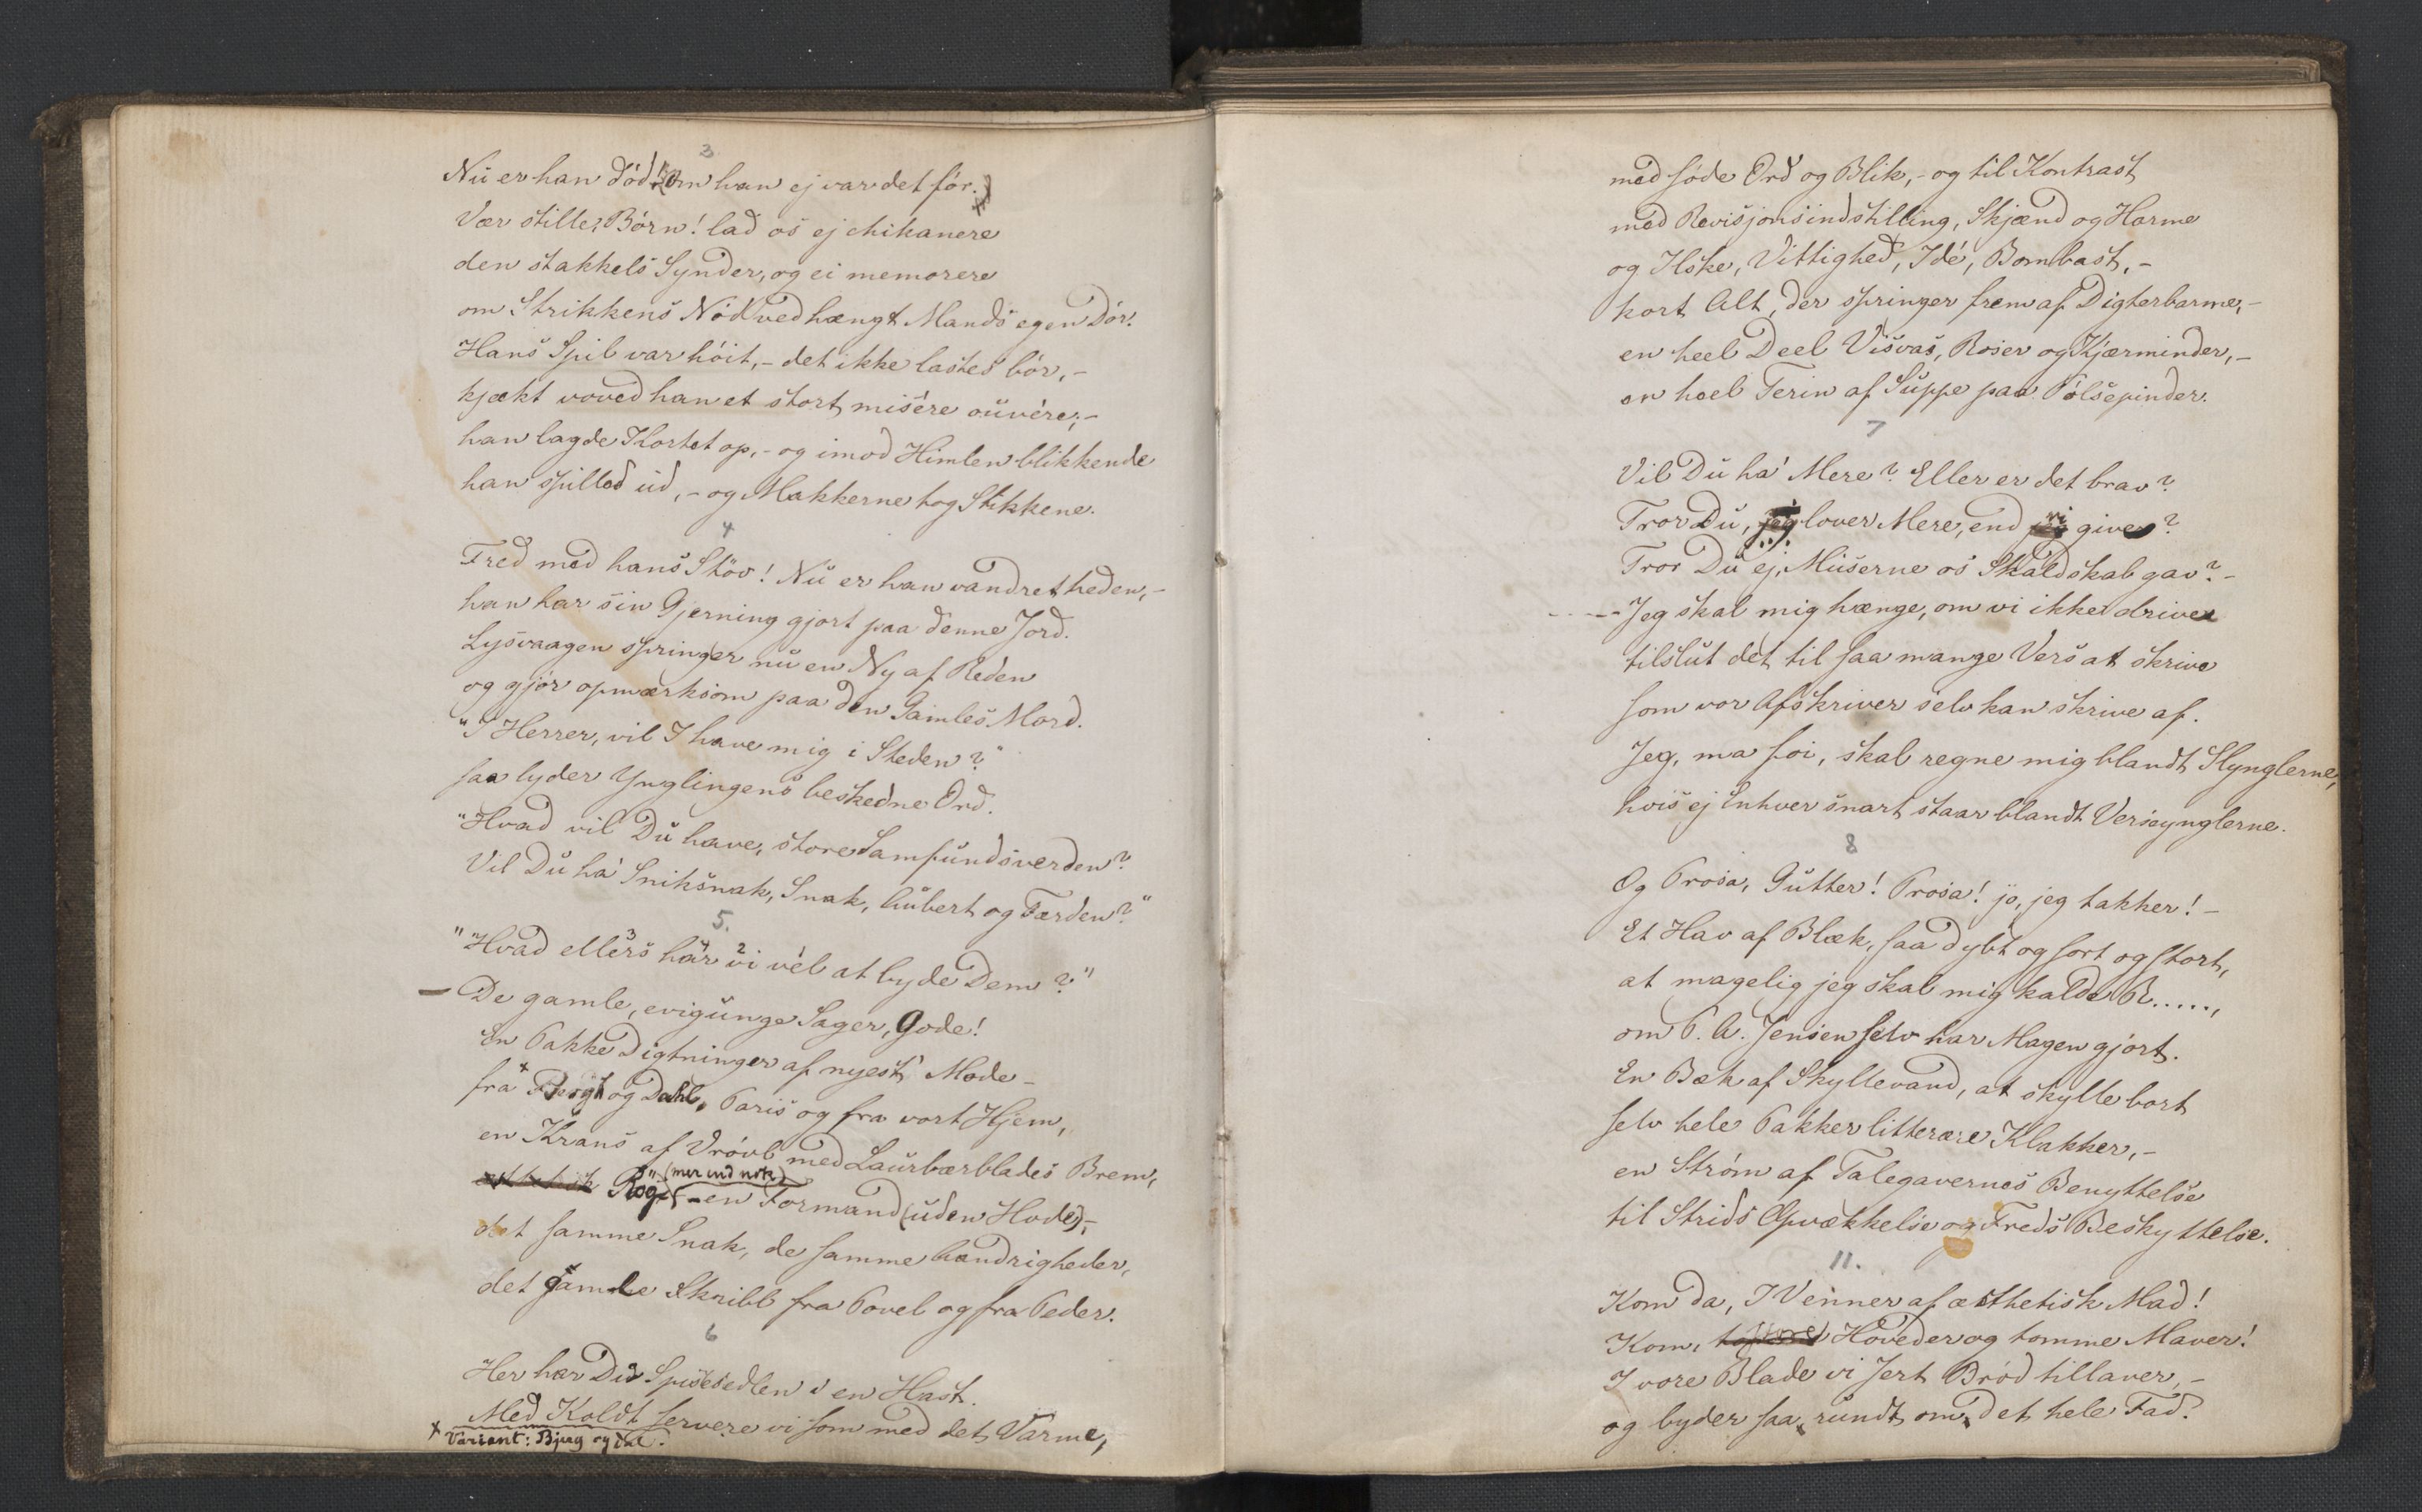 3
Nu er han död! (Om han ej var det för.)
Vær stille, Börn! lad os ej chikanere
den stakkels Synder, og ei memorere
om Strikkens Nöd ved hængt Mands egen Dör.
Hans Spil var höit, – det ikke lastes bör, –
kjækt voved han et stort misére ouvére; –
han lagde Kortet op, – og imod Himlen blikkende
han spilled ud, – og Makkerne tog Stikkene.
4
Fred med hans Stöv! Nu er han vandret heden, –
han har sin Gjerning gjort paa denne Jord.
Lysvaagen springer nu en Ny af Reden
og gjör opmærksom paa den Gamles Mord.
"I Herrer, vil I have mig i Steden?"
saa lyder Ynglingens beskedne Ord.
"Hvad vil Du have, store Samfundsverden?
Vil Du ha' Sniksnak, Snak, Aubert og Færden?"
5.
"Hvad ellers har vi vel at byde Dem?"
– De gamle, evigunge Sager, Gode!
En Pakke Digtninger af nyest' Mode –
fra x og Dahl, Paris og fra vort Hjem,
en Krans af Vrövl med Laurbærblades Brem,
Rög" (mer end nok) – en Formand (uden Hode), –
det samme Snak, de samme Aandrigheder,
det gamle Skribl fra Povel og fra Peder.
6
Her har De Spisesedlen i en Hast.
Med Koldt servere vi som med det Varme,
x Variant: Bjug og Dal.
med söde Ord og Blik, – og til Kontrast
med Revisjonsindstilling, Skjænd og Harme
og Ilske, Vittighed, Idé, Bombast, –
kort Alt, der springer frem af Digterbarme, –
en heel Deel Visvas, Roser og Kjærminder, –
en heel Terin af Suppe paa Pölsepinder.
7
Vil Du ha' Mere? Eller er det brav?
Tror Du, jeg lover Mere, end vi giver?
Tror Du ej, Muserne os Skaldskab gav? –
– Jeg skal mig hænge, om vi ikke driver
tilslut det til saa mange Vers at skrive
som vor Afskriver selv kan skrive af.
Jeg, ma foi, skal regne mig blandt Slynglerne,
hvis ej Enhver snart staar blandt Verseynglerne.
8
Og Prosa, Gutter! Prosa! jo, jeg takker! –
Et Hav af Blæk, saa dybt og sort og stort,
at magelig jeg skal mig kalde R.....,
om P. A. Jensen selv har Magen gjort.
En Bæk af Skyllevand, at skylle bort
selv hele Pakker litterære Klakker, –
en Ström af Talegavernes Benyttelse
til Strids Opvækkelse og Freds Beskyttelse.
11.
Kom da, I Venner af æsthetisk Mad!
Kom, Hoveder og tomme Maver!
I vore Blade vi Jert Bröd tillaver, –
og byder saa rundt om det hele Fad.